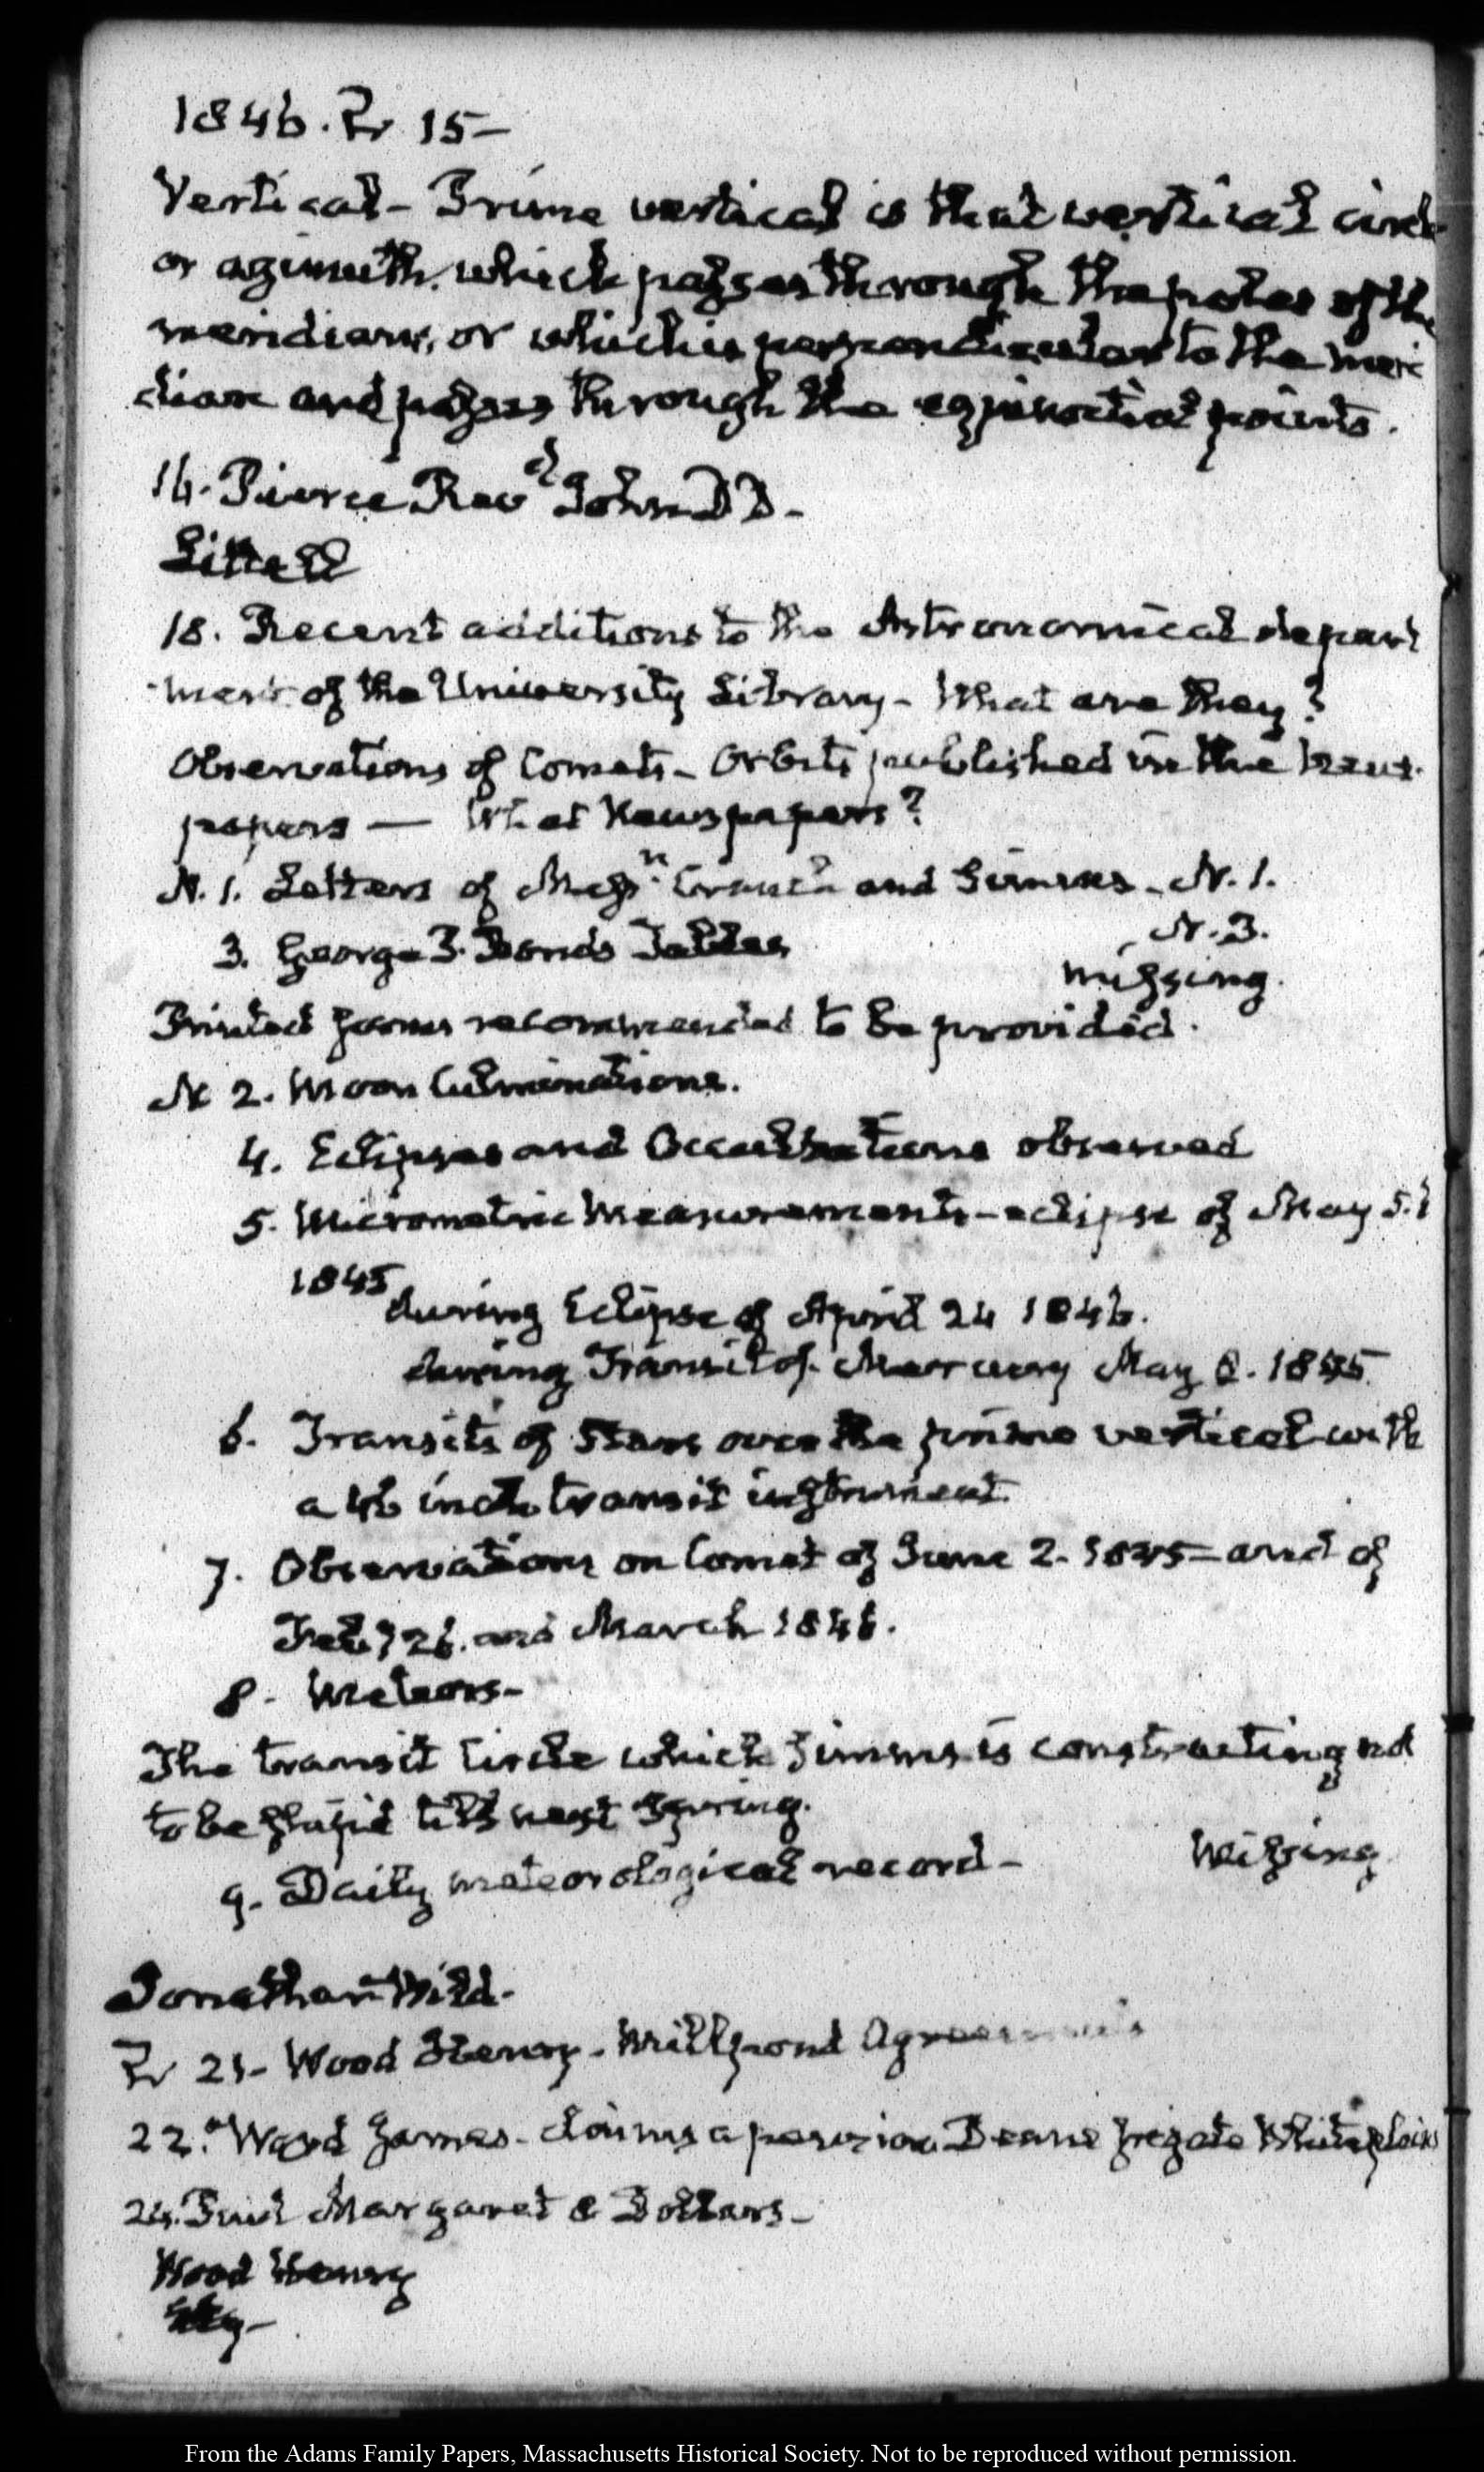 1846. IV 15–
Vertical – Prime vertical is that vertical circle
or azimuth. which passes through the poles of the
meridian, or which is perpendicular to the meri
dian and passes through the equinoctial points.
16. Pierce Revd John DD –
Littell
18. Recent additions to the Astronomical depart
ment of the University Library – What are they?
Observations of Comets – Orbits published in the news
papers — What Newspapers?
N. 1. Letters of Messrs and Simms – N. 1.
N. 3.
3. George P. Bonds
missing.
Printed forms recommended to be provided.
N 2. Moon Culminations.
4. Eclipses and Occultations observed
5. Micrometric Measurements – eclipse of May 5.
1845
during Eclipse of April 24 1846.
during Transit of Mercury May 8. 1845
6. Transits of Stars over the prime vertical with
a 46 inch transit instrument.
7. Observations on Comet of June 2. 1845 – and of
26. and March 1846.
8. Meteors –
The transit Circle which Simms is constructing not
to be till next Spring.
9. Daily meteorological record – Missing
Jonathan Wild.
IV 21 – Wood Henry – Millpond Agreements
22. James – claims a pension Deane frigate Whiteplains
24. Margaret 8 Dollars –
Wood Henry
From the Adams Family Papers, Massachusetts Historical Society. Not to be reproduced without permission.